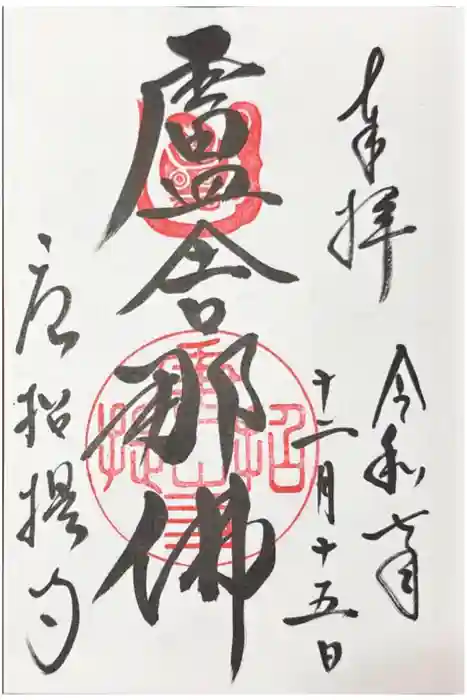 奉拝
令和七年
十一月十五日
盧舎那佛
唐招提寺